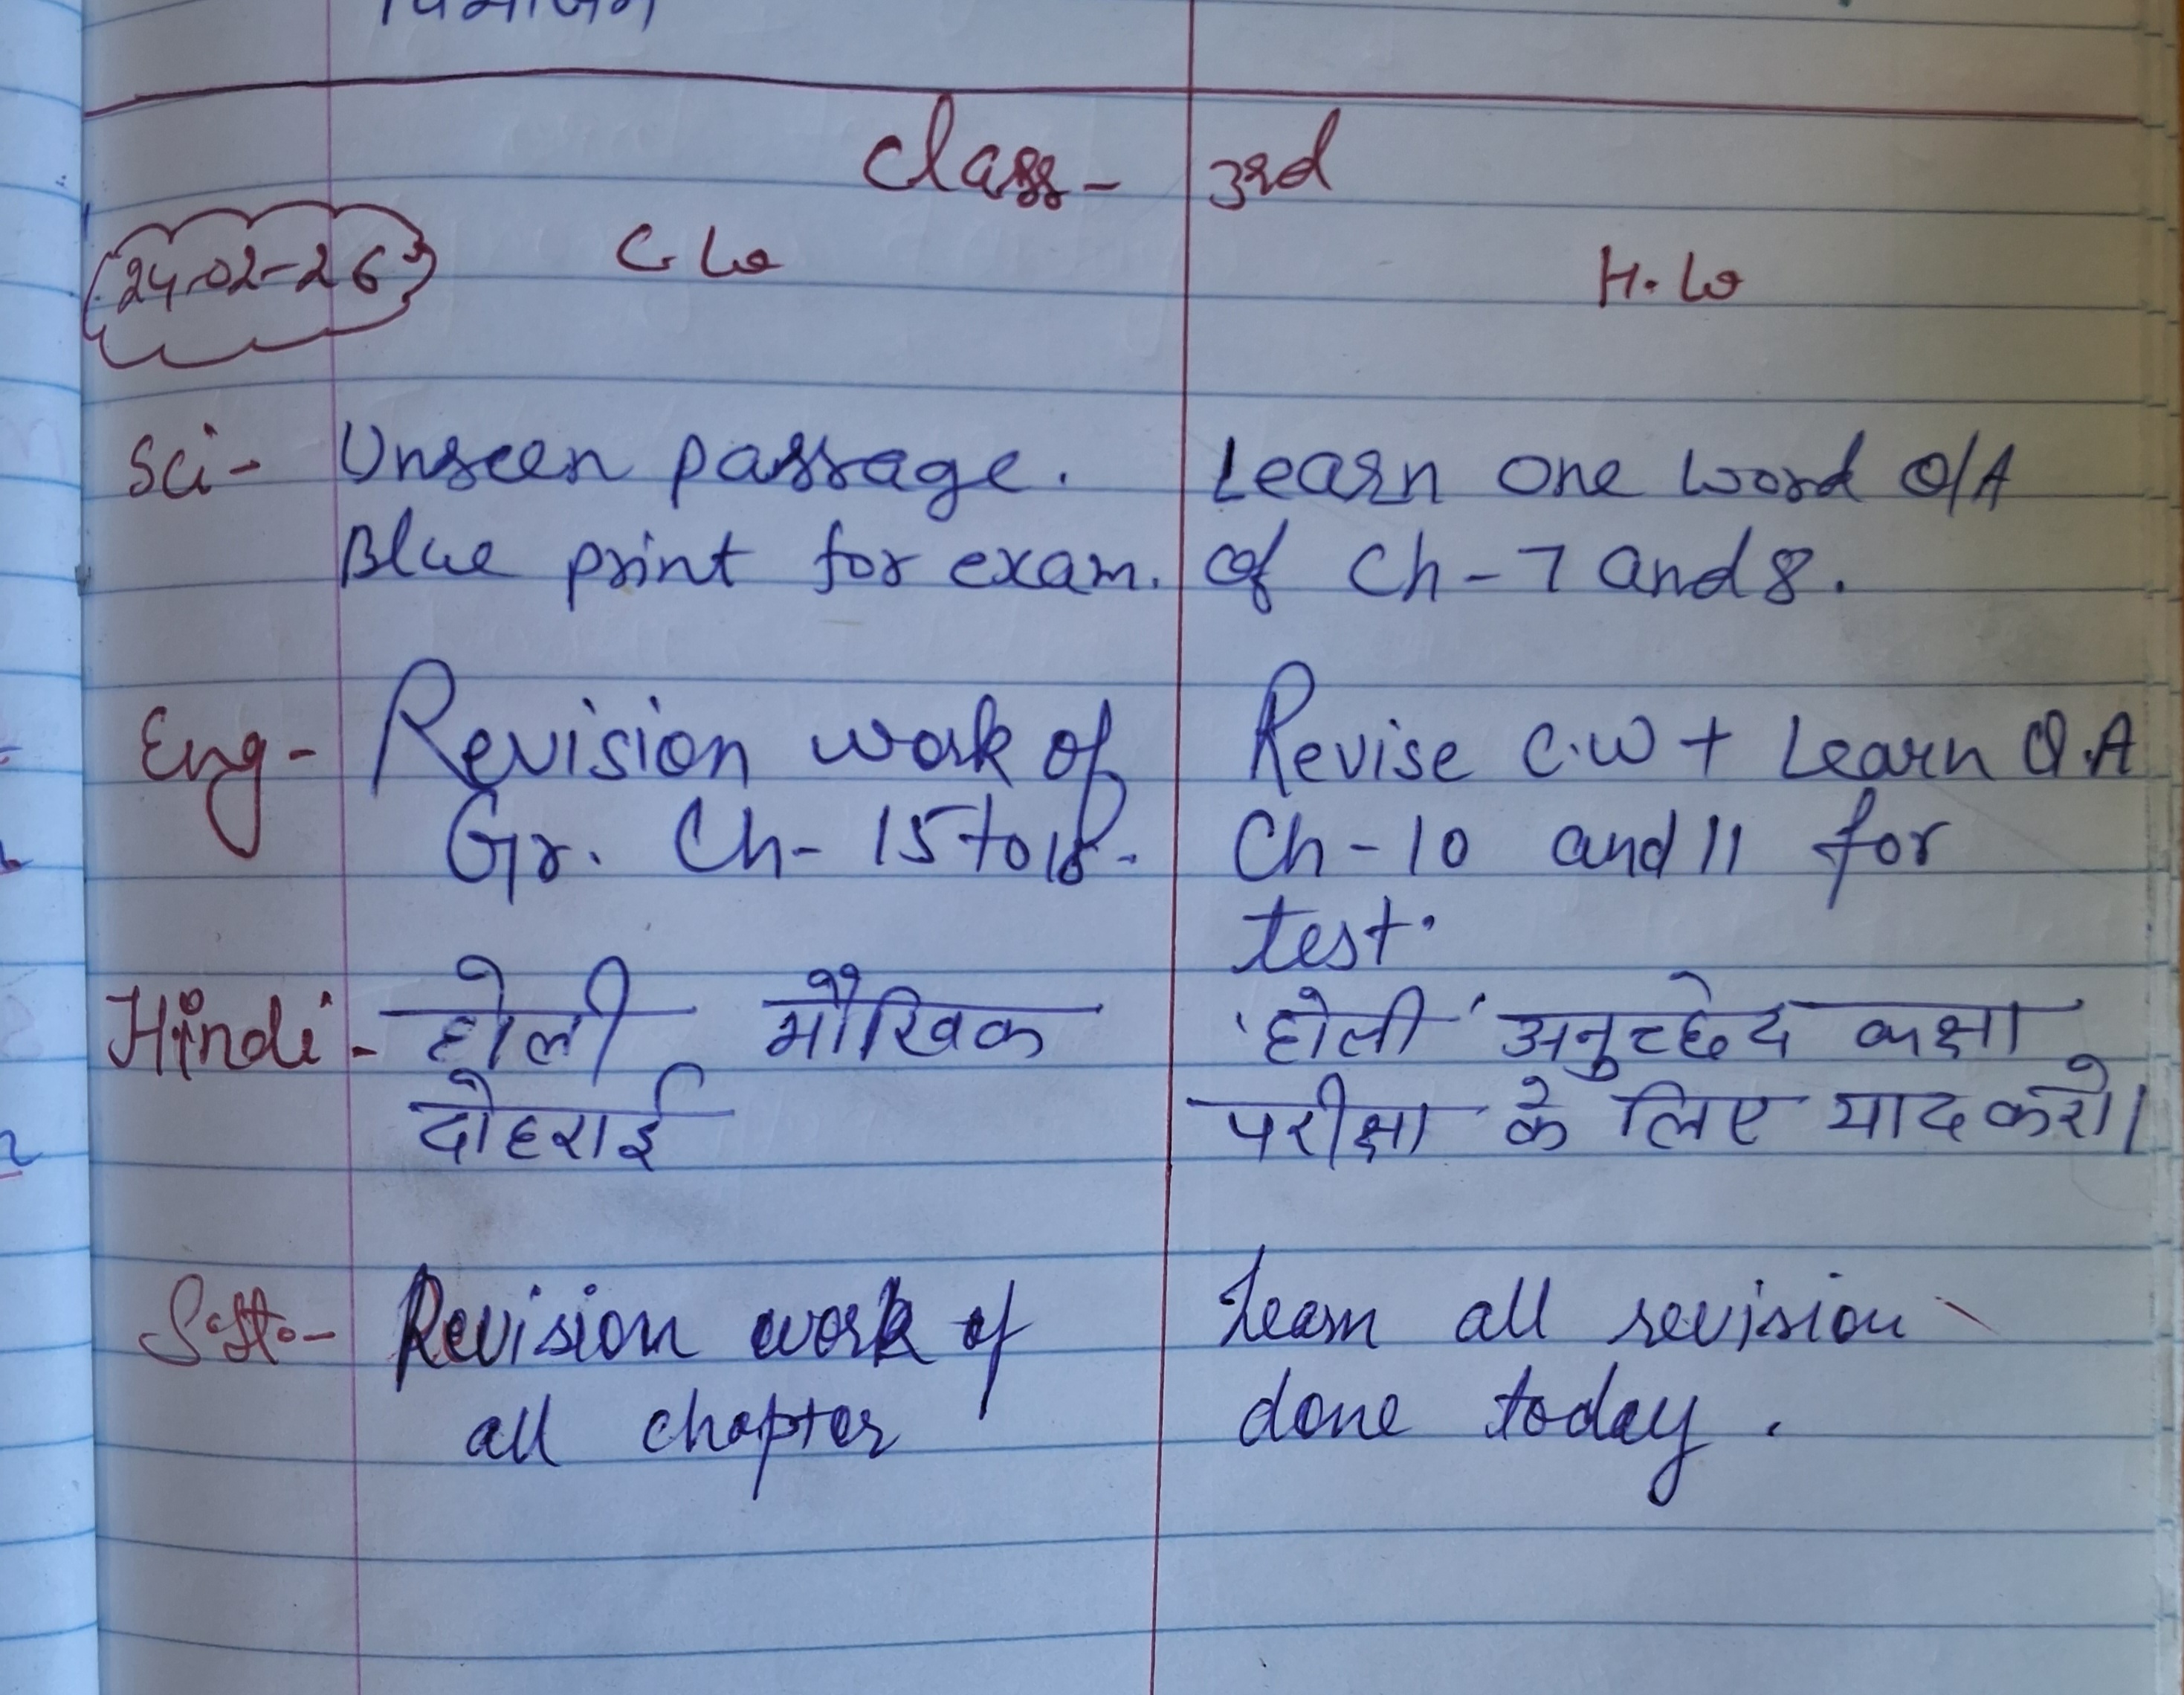 विभाजन
Class - 3rd
24-02-26 C.W H.W
Sci- Unseen passage. Learn one word Q/A
Blue print for exam. of Ch-7 and 8.
Eng- Revision work of Revise C.W + Learn Q.A
Gr. Ch- 15 to 18. Ch-10 and 11 for
test.
Hindi- होली मौखिक 'होली' अनुच्छेद कक्षा
दोहराई परीक्षा के लिए याद करो।
S.St.- Revision work of Learn all revision
all chapter done today.